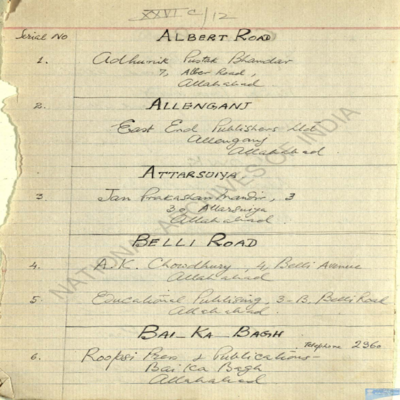 XXVI C/12
Serial No
ALBERT ROAD
1. Adhunik Pustak Bhandar
7, Albert Road,
Allahabad.
2. ALLENGANJ
East End Publishers Ltd
Allenganj
Allahabad
ATTARSUIYA,
3 Jan Prakashan Mandir, 3
30 Attarsuiya
Allahabad.
BELLI ROAD
4. A.K. Chowdhury, 4, Belli Avenue
Allahabad
5. Educational Publishing, 3-B, Belli Road
Allahabad.
BAI-KA BAGH
Telephone 2360
6. Roopsi Press & Publications-
Bai Ka Bagh
Allahabad
NATIONAL ARCHIVES OF INDIA